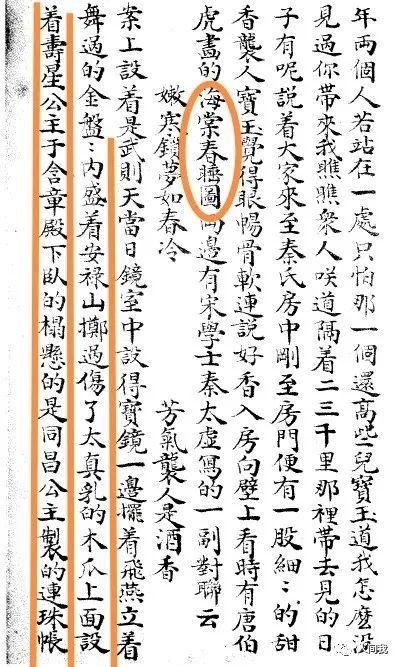 年兩個人若站在一處只怕那一個還髙些兒寶玉道我怎麽没
見過你帶來我瞧瞧衆人咲道隔着二三千里那裡帶去見的日
子有呢説着大家來至秦氏房中剛至房門便有一股細〻的甜
香襲人寶玉覺得眼暢骨軟連説好香入房向壁上看時有唐伯
虎畫的海棠春睡圖兩邊有宋學士秦太虛寫的一副對聯云
嫩寒鎖夢如春冷　芳氣襲人是酒香
案上設着是武則天當日鏡室中設得寶鏡一邊擺着飛燕立着
舞過的金盤〻內盛着安祿山擲過傷了太真乳的木瓜上面設
着壽星公主于含章殿下臥的榻懸的是同昌公主製的連珠帳